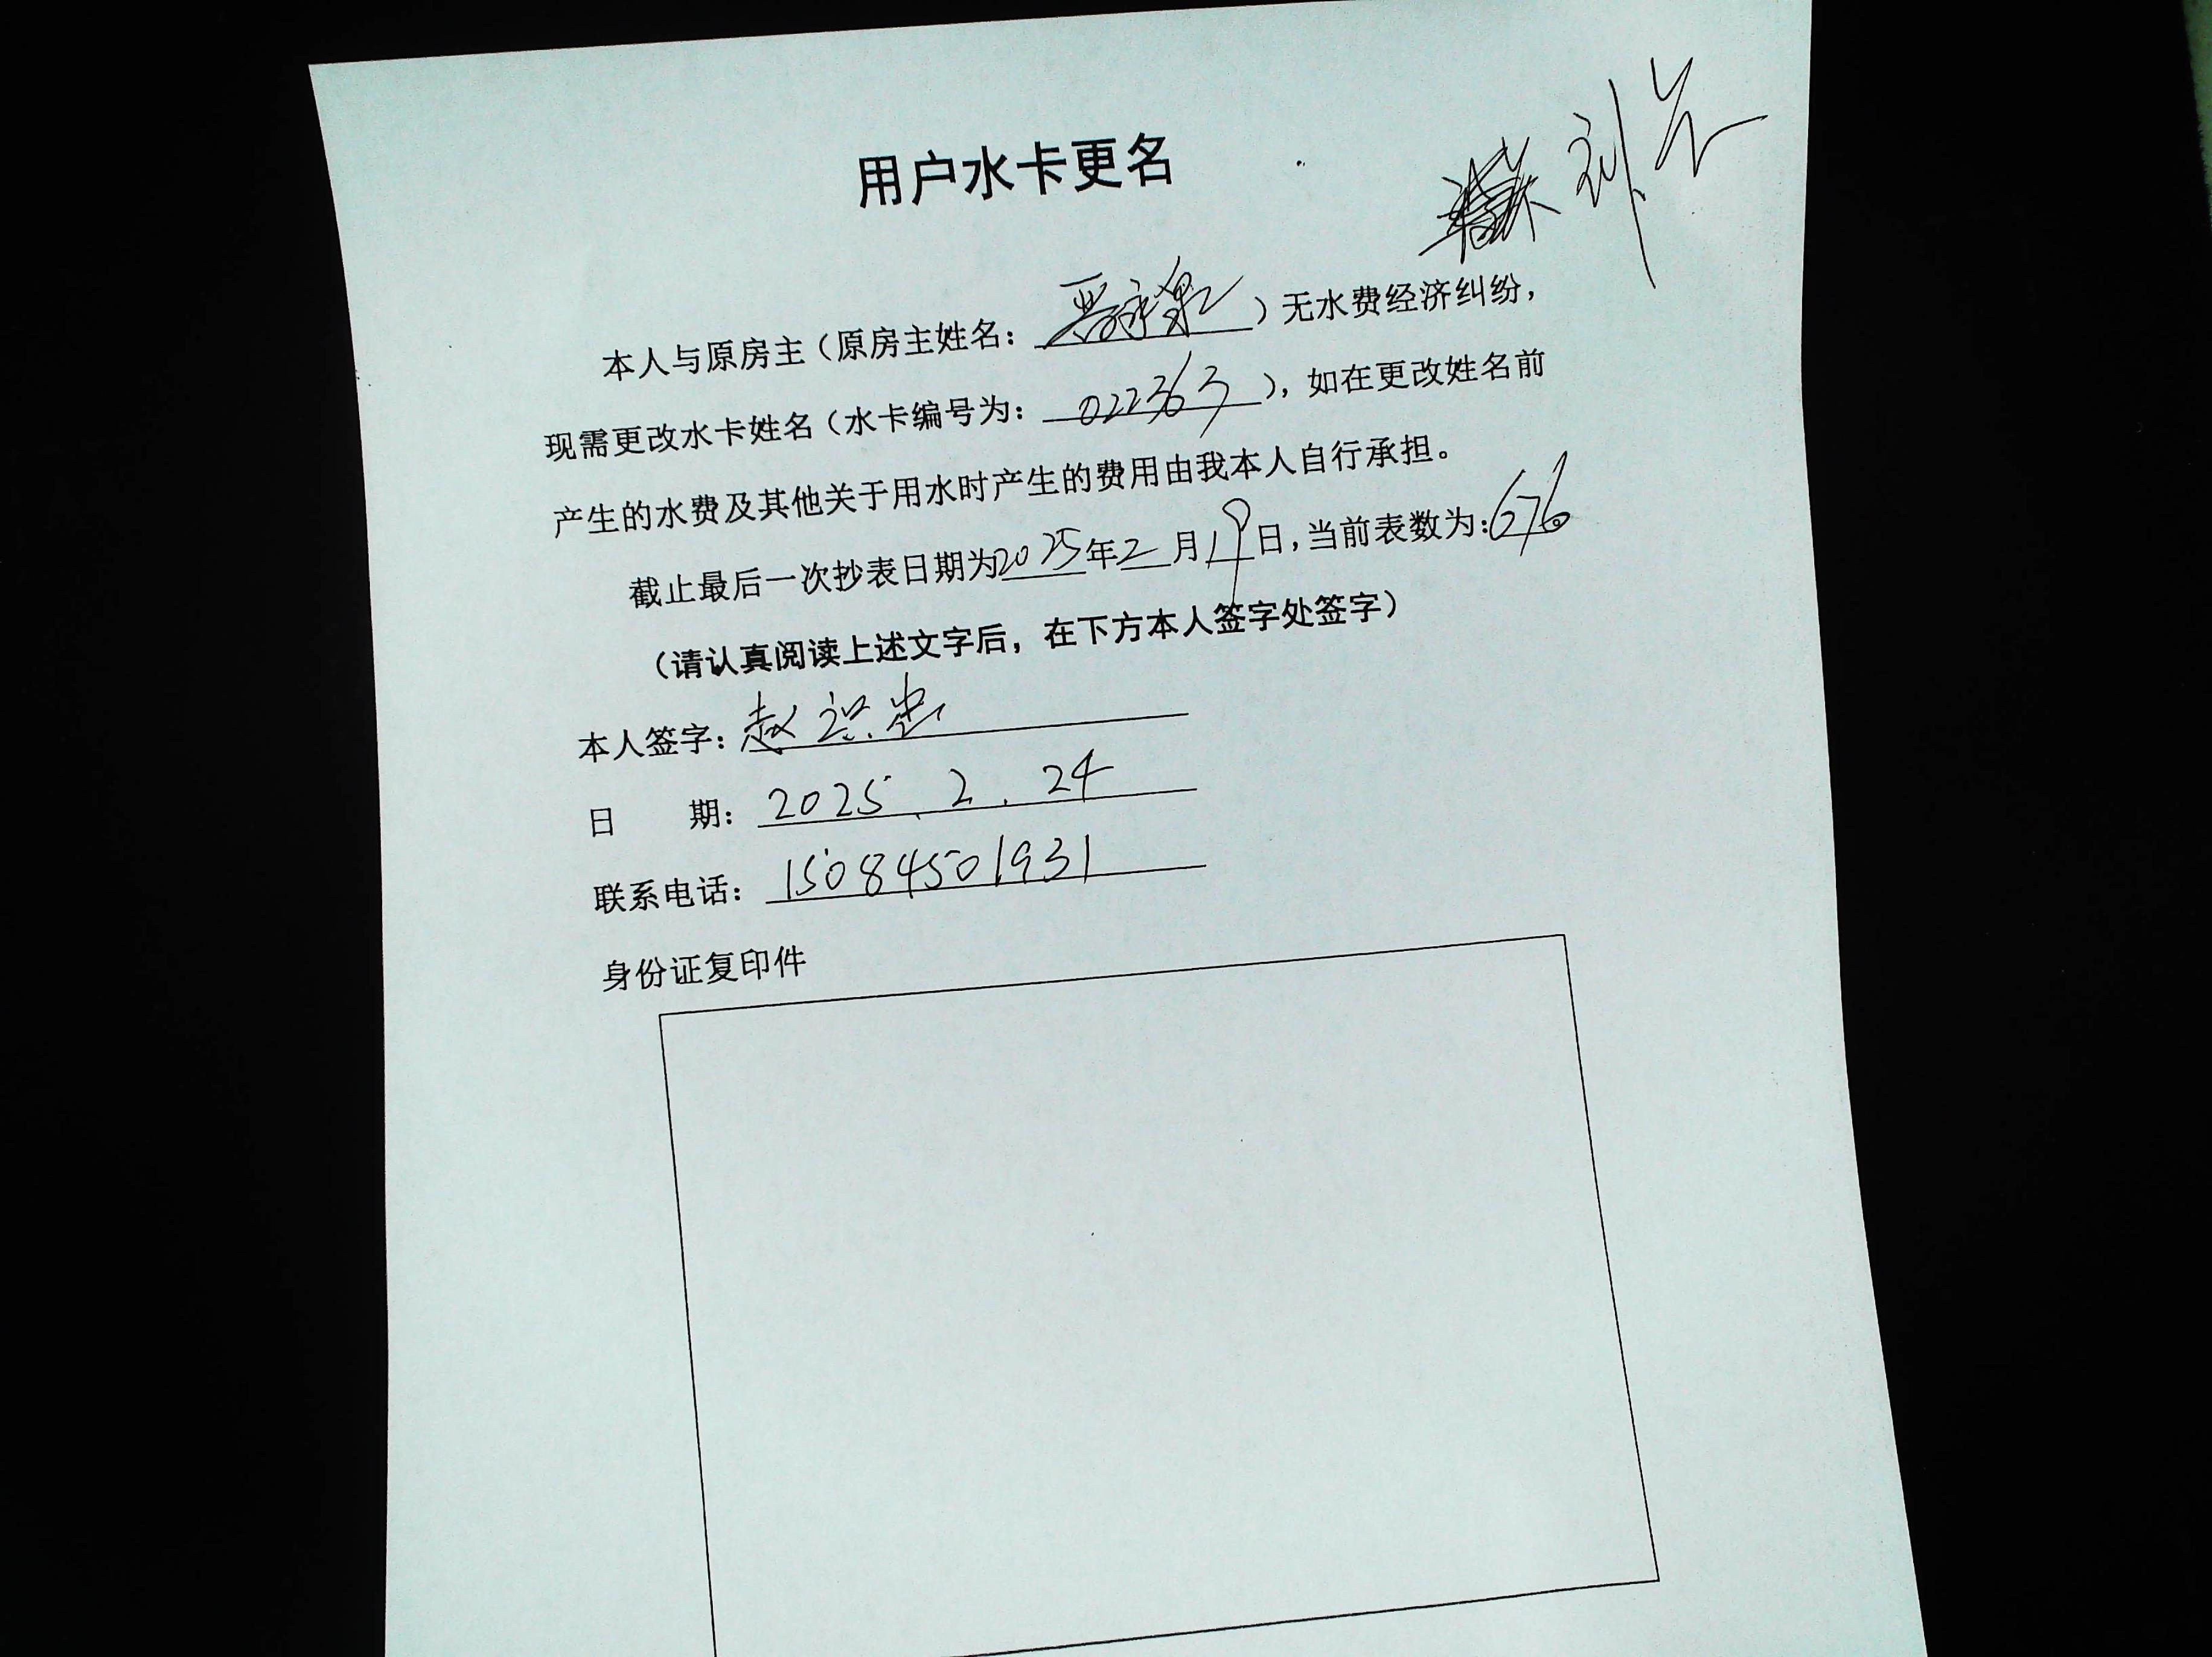 用户水卡更名
刘
本人与原房主（原房主姓名：）无水费经济纠纷，
现需更改水卡姓名（水卡编号为：022363），如在更改姓名前
产生的水费及其他关于用水时产生的费用由我本人自行承担。
截止最后一次抄表日期为2025年2月19日，当前表数为：676
（请认真阅读上述文字后，在下方本人签字处签字）
本人签字：赵
日 期：2025.2.24
联系电话：15084501931
身份证复印件